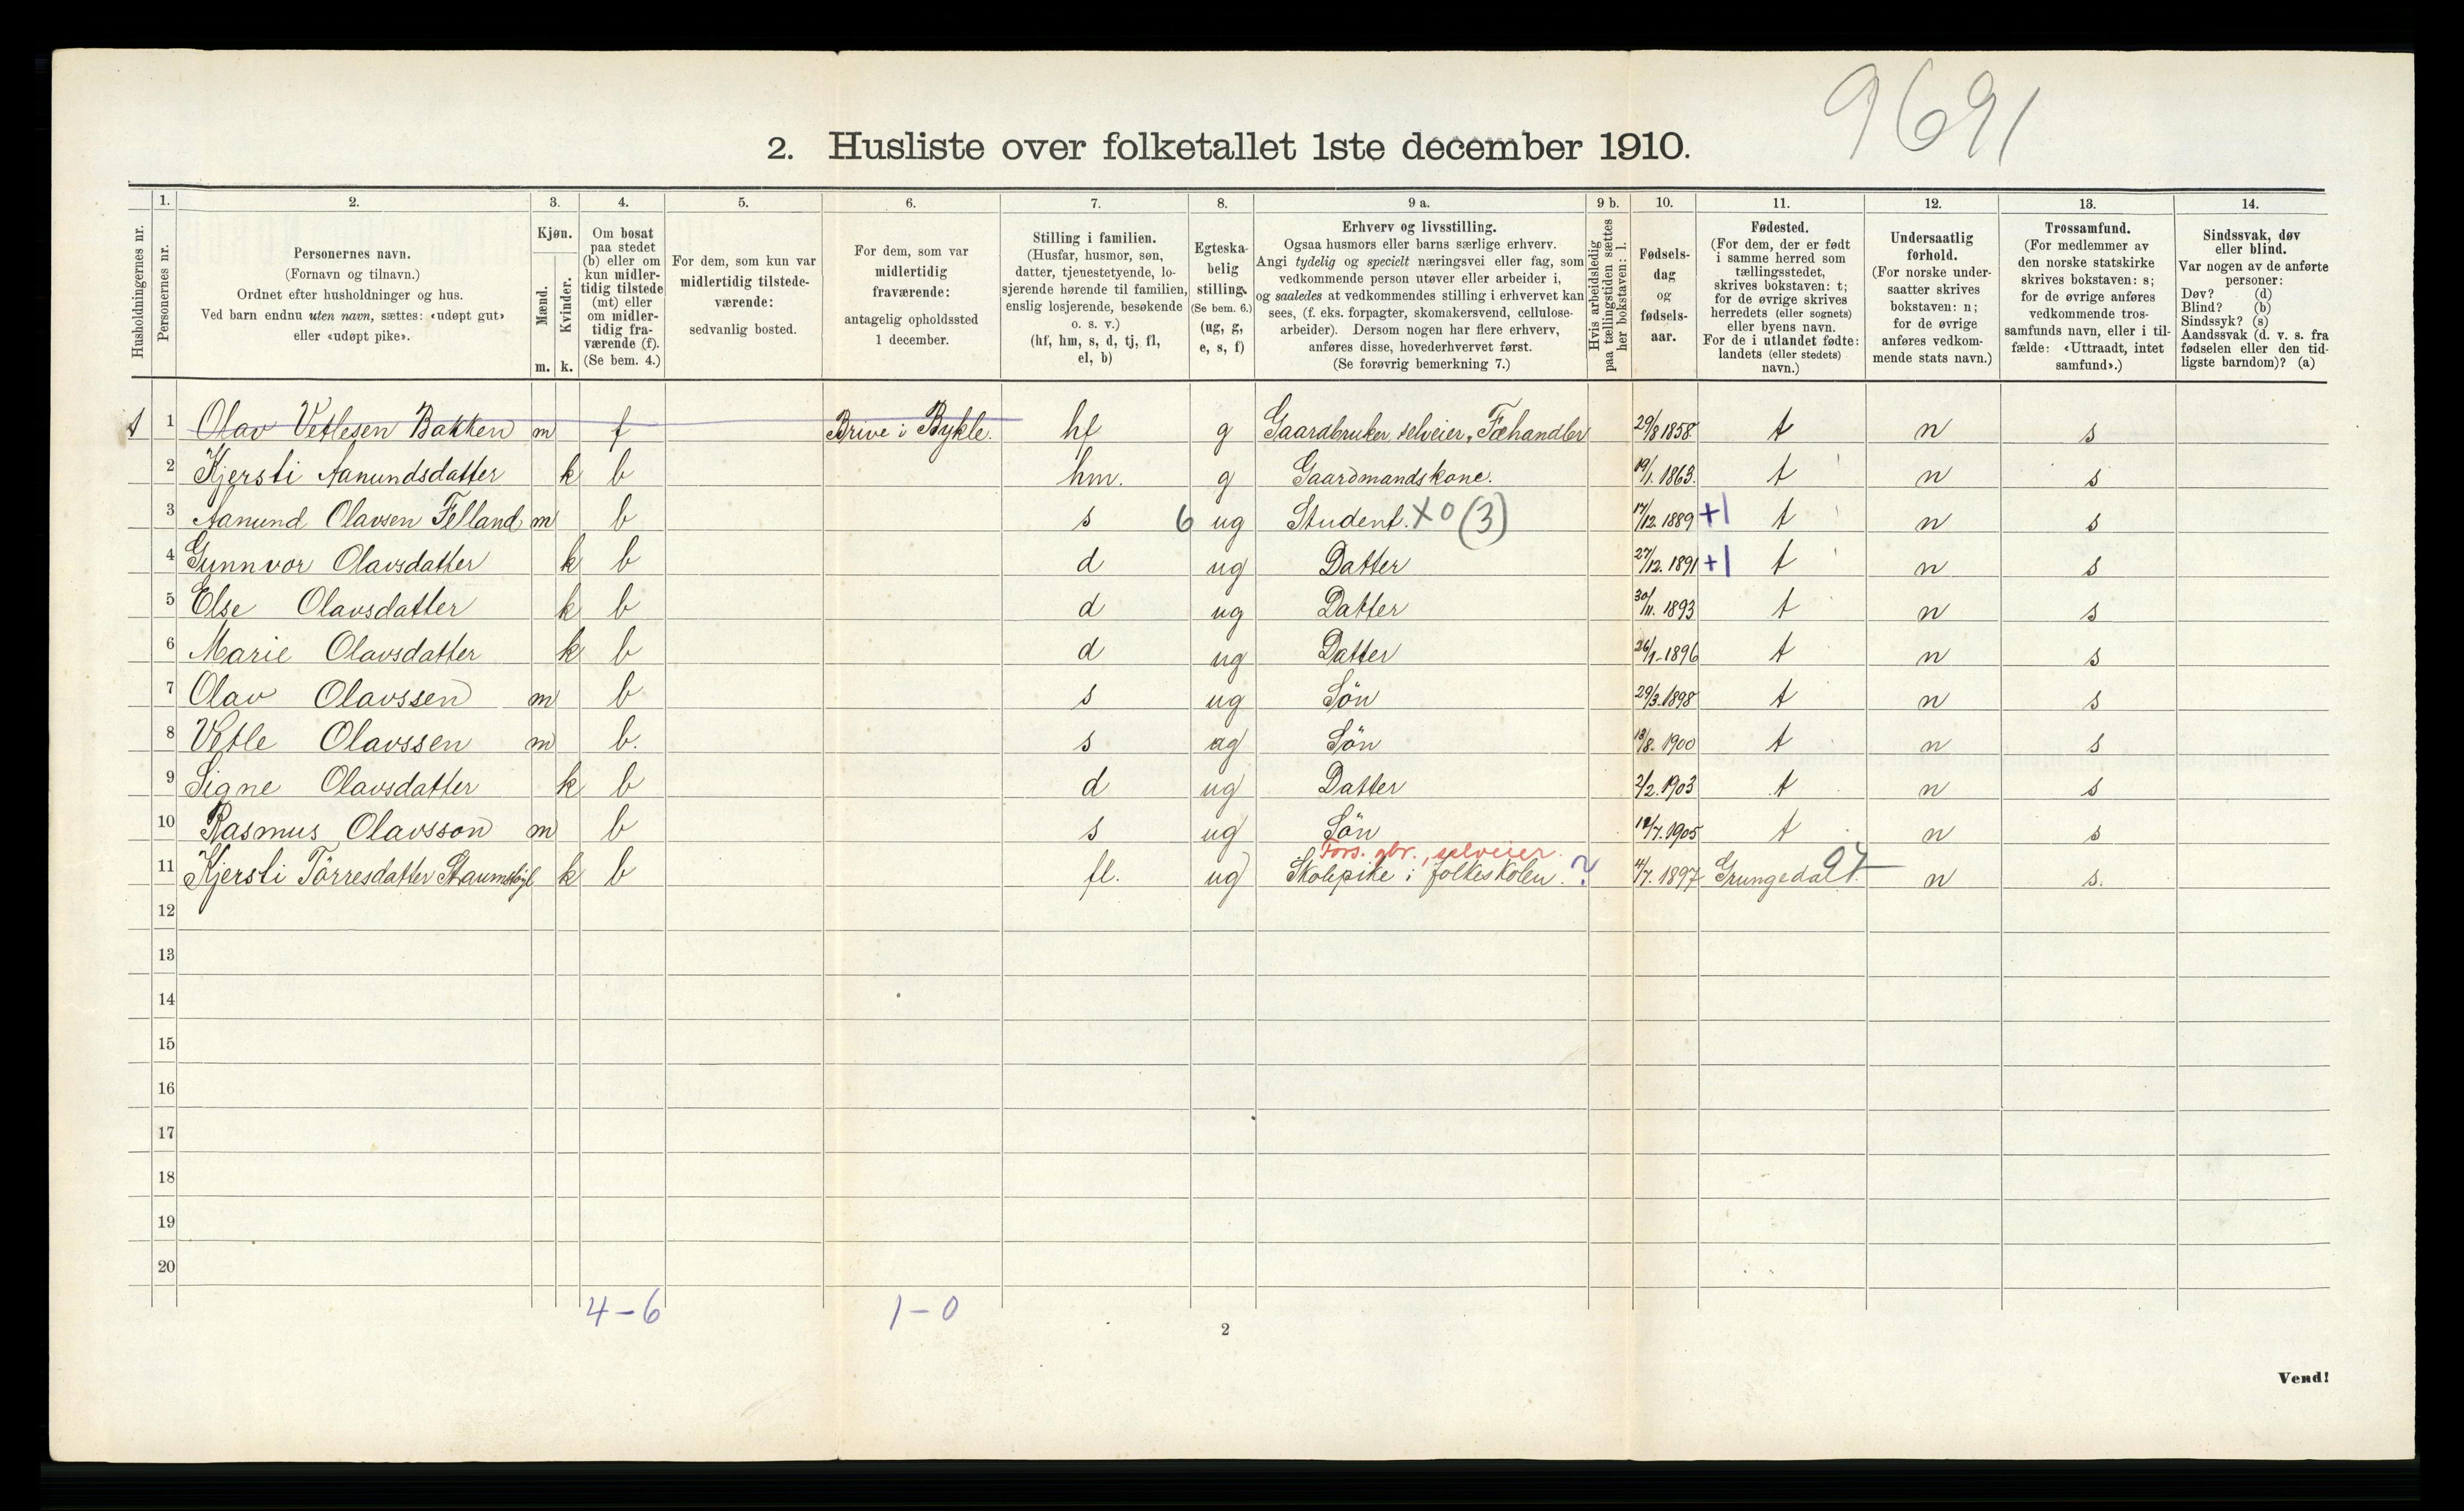 9691
2. Husliste over folketallet 1ste december 1910.
Husholdningernes nr.
1. Personernes nr.
2. Personernes navn.
(Fornavn og tilnavn.)
Ordnet efter husholdninger og hus.
Ved barn endnu uten navn, sættes: «udøpt gut»
eller «udøpt pike».
3. Kjøn.
Mænd. m.
Kvinder. k.
4. Om bosat
paa stedet
(b) eller om
kun midler-
tidig tilstede
(mt) eller
om midler-
tidig fra-
værende (f).
(Se bem. 4.)
5. For dem, som kun var
midlertidig tilstede-
værende:
sedvanlig bosted.
6. For dem, som var
midlertidig
fraværende:
antagelig opholdssted
1 december.
7. Stilling i familien.
(Husfar, husmor, søn,
datter, tjenestetyende, lo-
sjerende hørende til familien,
enslig losjerende, besøkende
o. s. v.)
(hf, hm, s, d, tj, fl,
el, b)
8. Egteska-
belig
stilling.
(Se bem. 6.)
(ug, g,
e, s, f)
9 a. Erhverv og livsstilling.
Ogsaa husmors eller barns særlige erhverv.
Angi tydelig og specielt næringsvei eller fag, som
vedkommende person utøver eller arbeider i,
og saaledes at vedkommendes stilling i erhvervet kan
sees, (f. eks. forpagter, skomakersvend, cellulose-
arbeider). Dersom nogen har flere erhverv,
anføres disse, hovederhvervet først.
(Se forøvrig bemerkning 7.)
9 b. Hvis arbeidsledig
paa tællingstiden sættes
her bokstaven: l.
10. Fødsels-
dag
og
fødsels-
aar.
11. Fødested.
(For dem, der er født
i samme herred som
tællingsstedet,
skrives bokstaven: t;
for de øvrige skrives
herredets (eller sognets)
eller byens navn.
For de i utlandet fødte:
landets (eller stedets)
navn.)
12. Undersaatlig
forhold.
(For norske under-
saatter skrives
bokstaven: n;
for de øvrige
anføres vedkom-
mende stats navn.)
13. Trossamfund.
(For medlemmer av
den norske statskirke
skrives bokstaven: s;
for de øvrige anføres
vedkommende tros-
samfunds navn, eller i til-
fælde: «Uttraadt, intet
samfund».)
14. Sindssvak, døv
eller blind.
Var nogen av de anførte
personer:
Døv? (d)
Blind? (b)
Sindssyk? (s)
Aandssvak (d. v. s. fra
fødselen eller den tid-
ligste barndom)? (a)
1 1 Olav Vetlesen Bakken m f Brive i Bykle. hf g Gaardbruker, selveier, Fæhandler 29/8 1858. t n s
2 Kjersti Aanundsdatter k b hm. g Gaardmandskone. 19/1. 1863. t n s
3 Aanund Olavsen Felland m b s 6 ug Student. XO (3) 17/12. 1889 +1 t n s
4 Gunnvor Olavsdatter k b d ug Datter 27/12. 1891 +1 t n s
5 Else Olavsdatter k b d ug Datter 30/11. 1893 t n s
6 Marie Olavsdatter k b d ug Datter 26/1. 1896 t n s
7 Olav Olavssen m b s ug Søn 29/3. 1898 t n s
8 Vetle Olavssen m b. s ug Søn 13/8. 1900 t n s
9 Signe Olavsdatter k b d ug Datter 2/2. 1903 t n s
10 Rasmus Olavsson m b s ug Søn 12/7. 1905 t n s
Fors. gbr., selveier.
11 Kjersti Törresdatter k b fl. ug Skolepike i folkeskolen. ? 4/7. 1897 Grungedal. n s.
12
13
14
15
16
17
18
19
20
4-6 1-0
2
Vend!